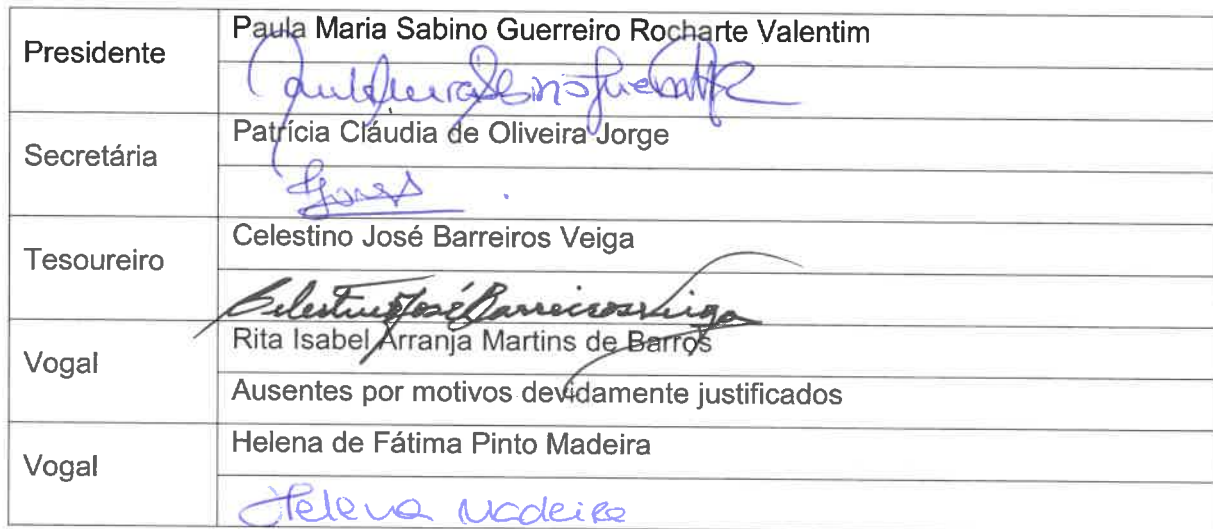 Presidente
Paula Maria Sabino Guerreiro Rocharte Valentim
Secretária
Patrícia Cláudia de Oliveira Jorge
Tesoureiro
Celestino José Barreiros Veiga
Celestino José Barreiros Veiga
Vogal
Rita Isabel Arranja Martins de Barros
Ausentes por motivos devidamente justificados
Vogal
Helena de Fátima Pinto Madeira
Helena Madeira